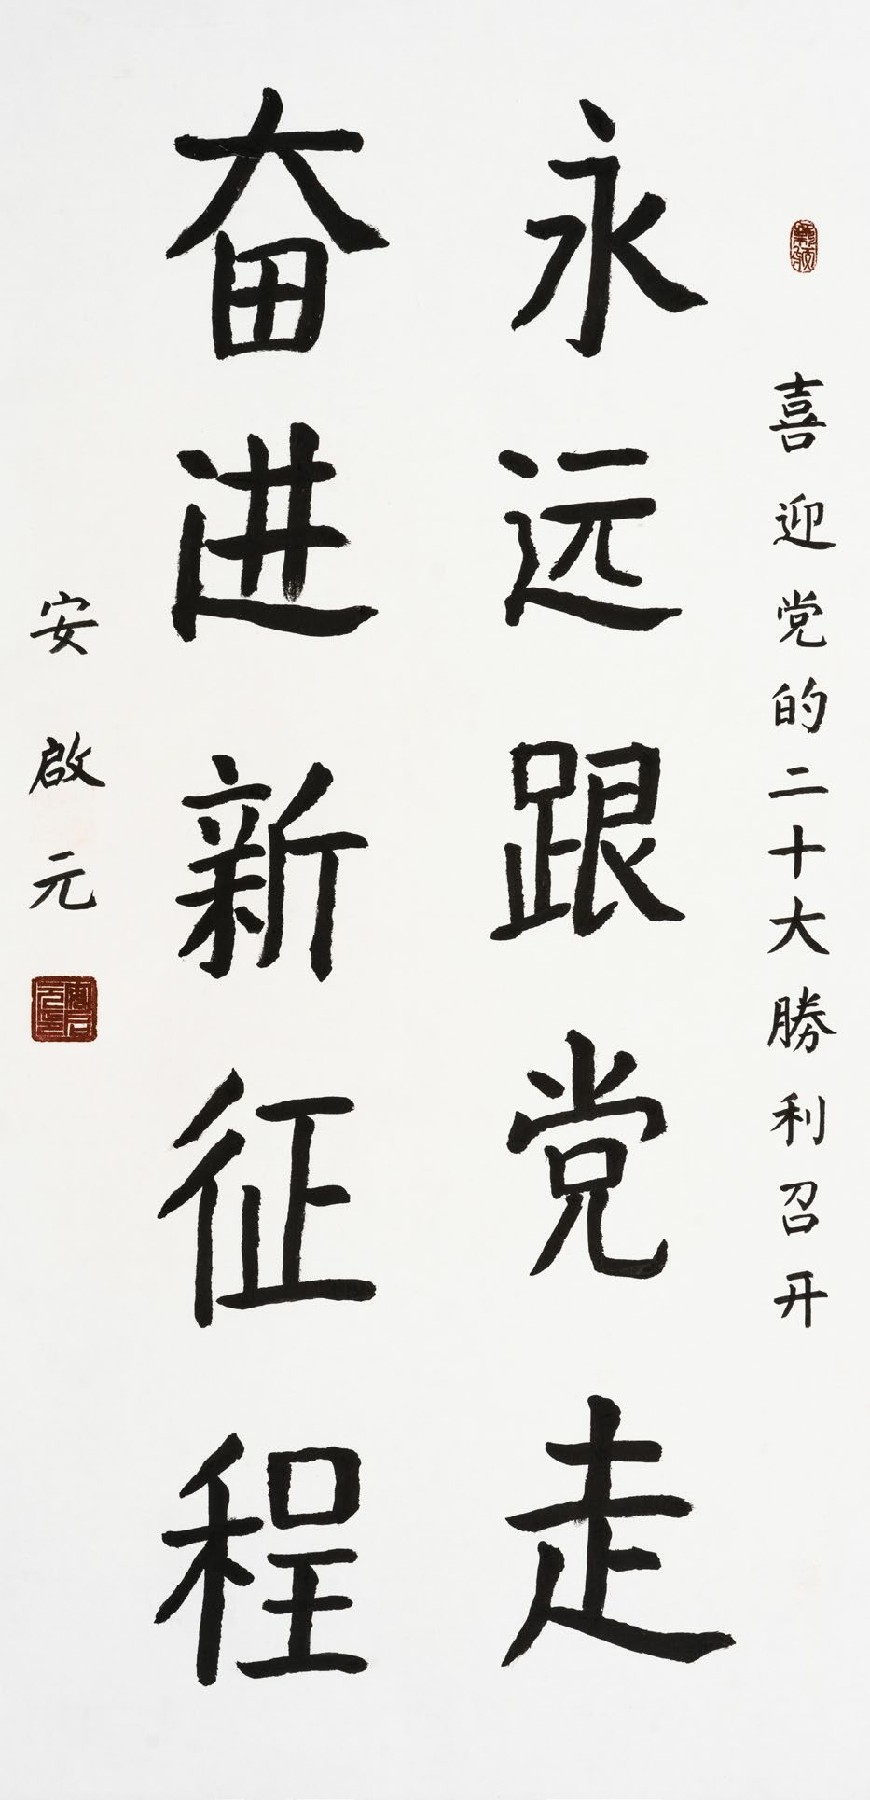 喜迎党的二十大勝利召开
永远跟党走
奋进新征程
安啟元